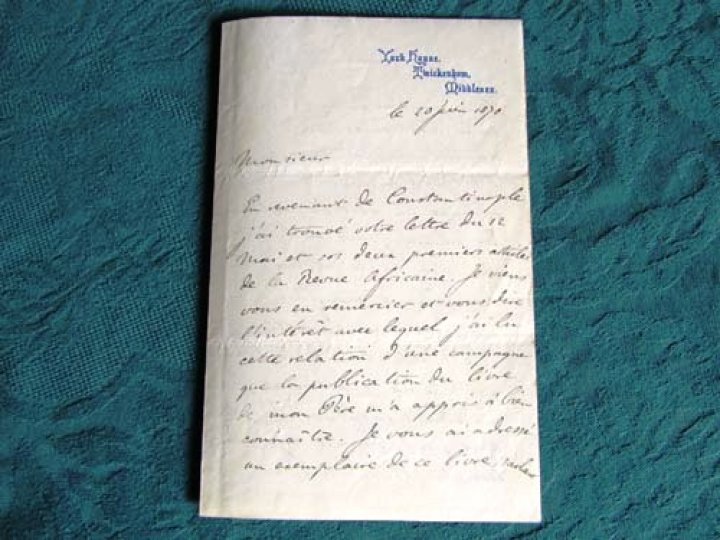 York House.
Twickenham,
Middlesex.
le 20 juin 1870
Monsieur
En revenant de Constantinople
j'ai trouvé votre lettre du 12
Mai et vos deux premiers articles
de la Revue Africaine. Je viens
vous en remercier et vous dire
l'intérêt avec lequel j'ai lu
cette relation d'une campagne
que la publication du livre
de mon Père m'a appris à bien
connaître. Je vous ai adressé
un exemplaire de ce livre,